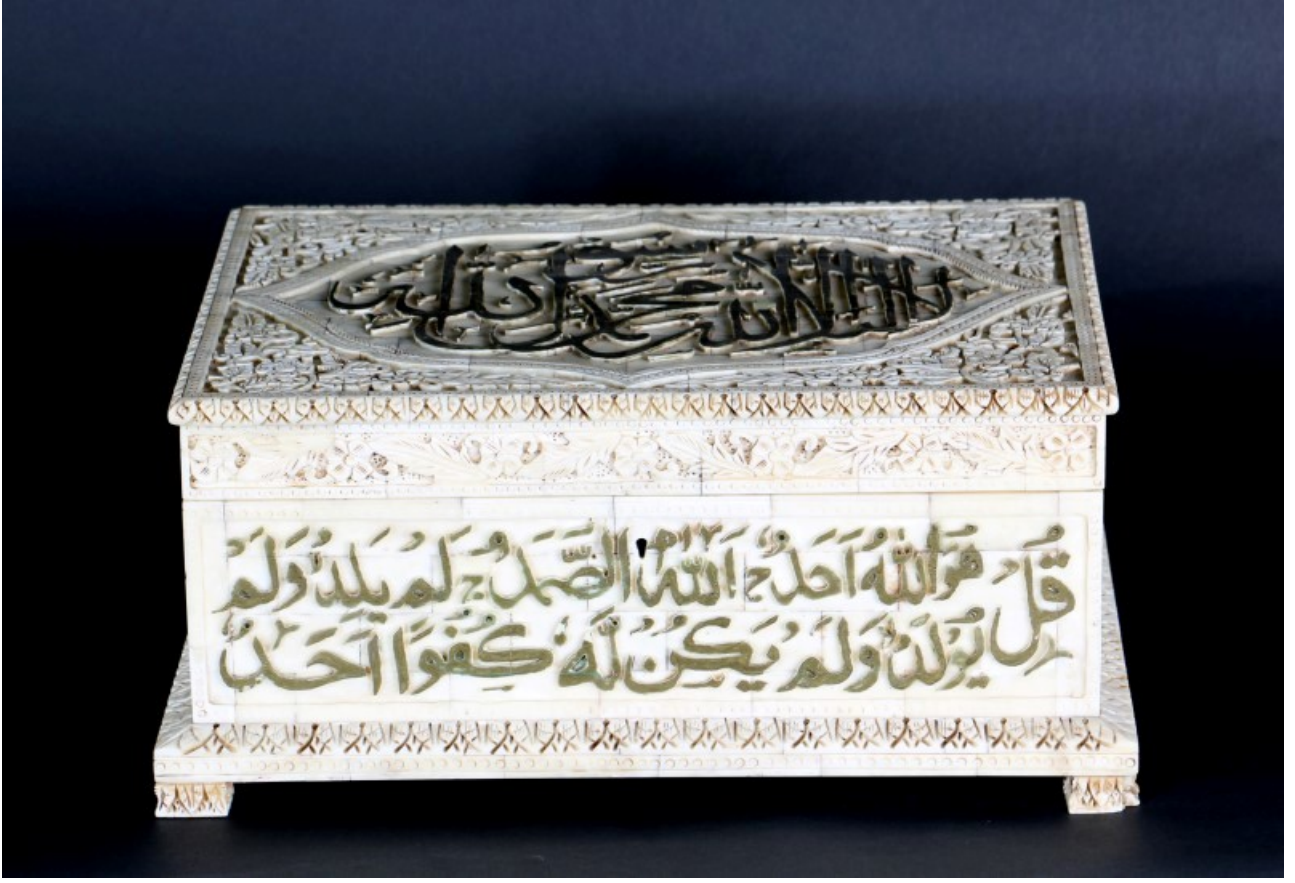 لا إله إلا الله محمد رسول الله
قُلْ هُوَ اللهُ اَحَدٌ ج اَللهُ الصَّمَدُ ج لَمْ يَلِدْ وَلَمْ
يُوْلَدْ وَلَمْ يَكُنْ لَهُ كُفُوًا اَحَدٌ